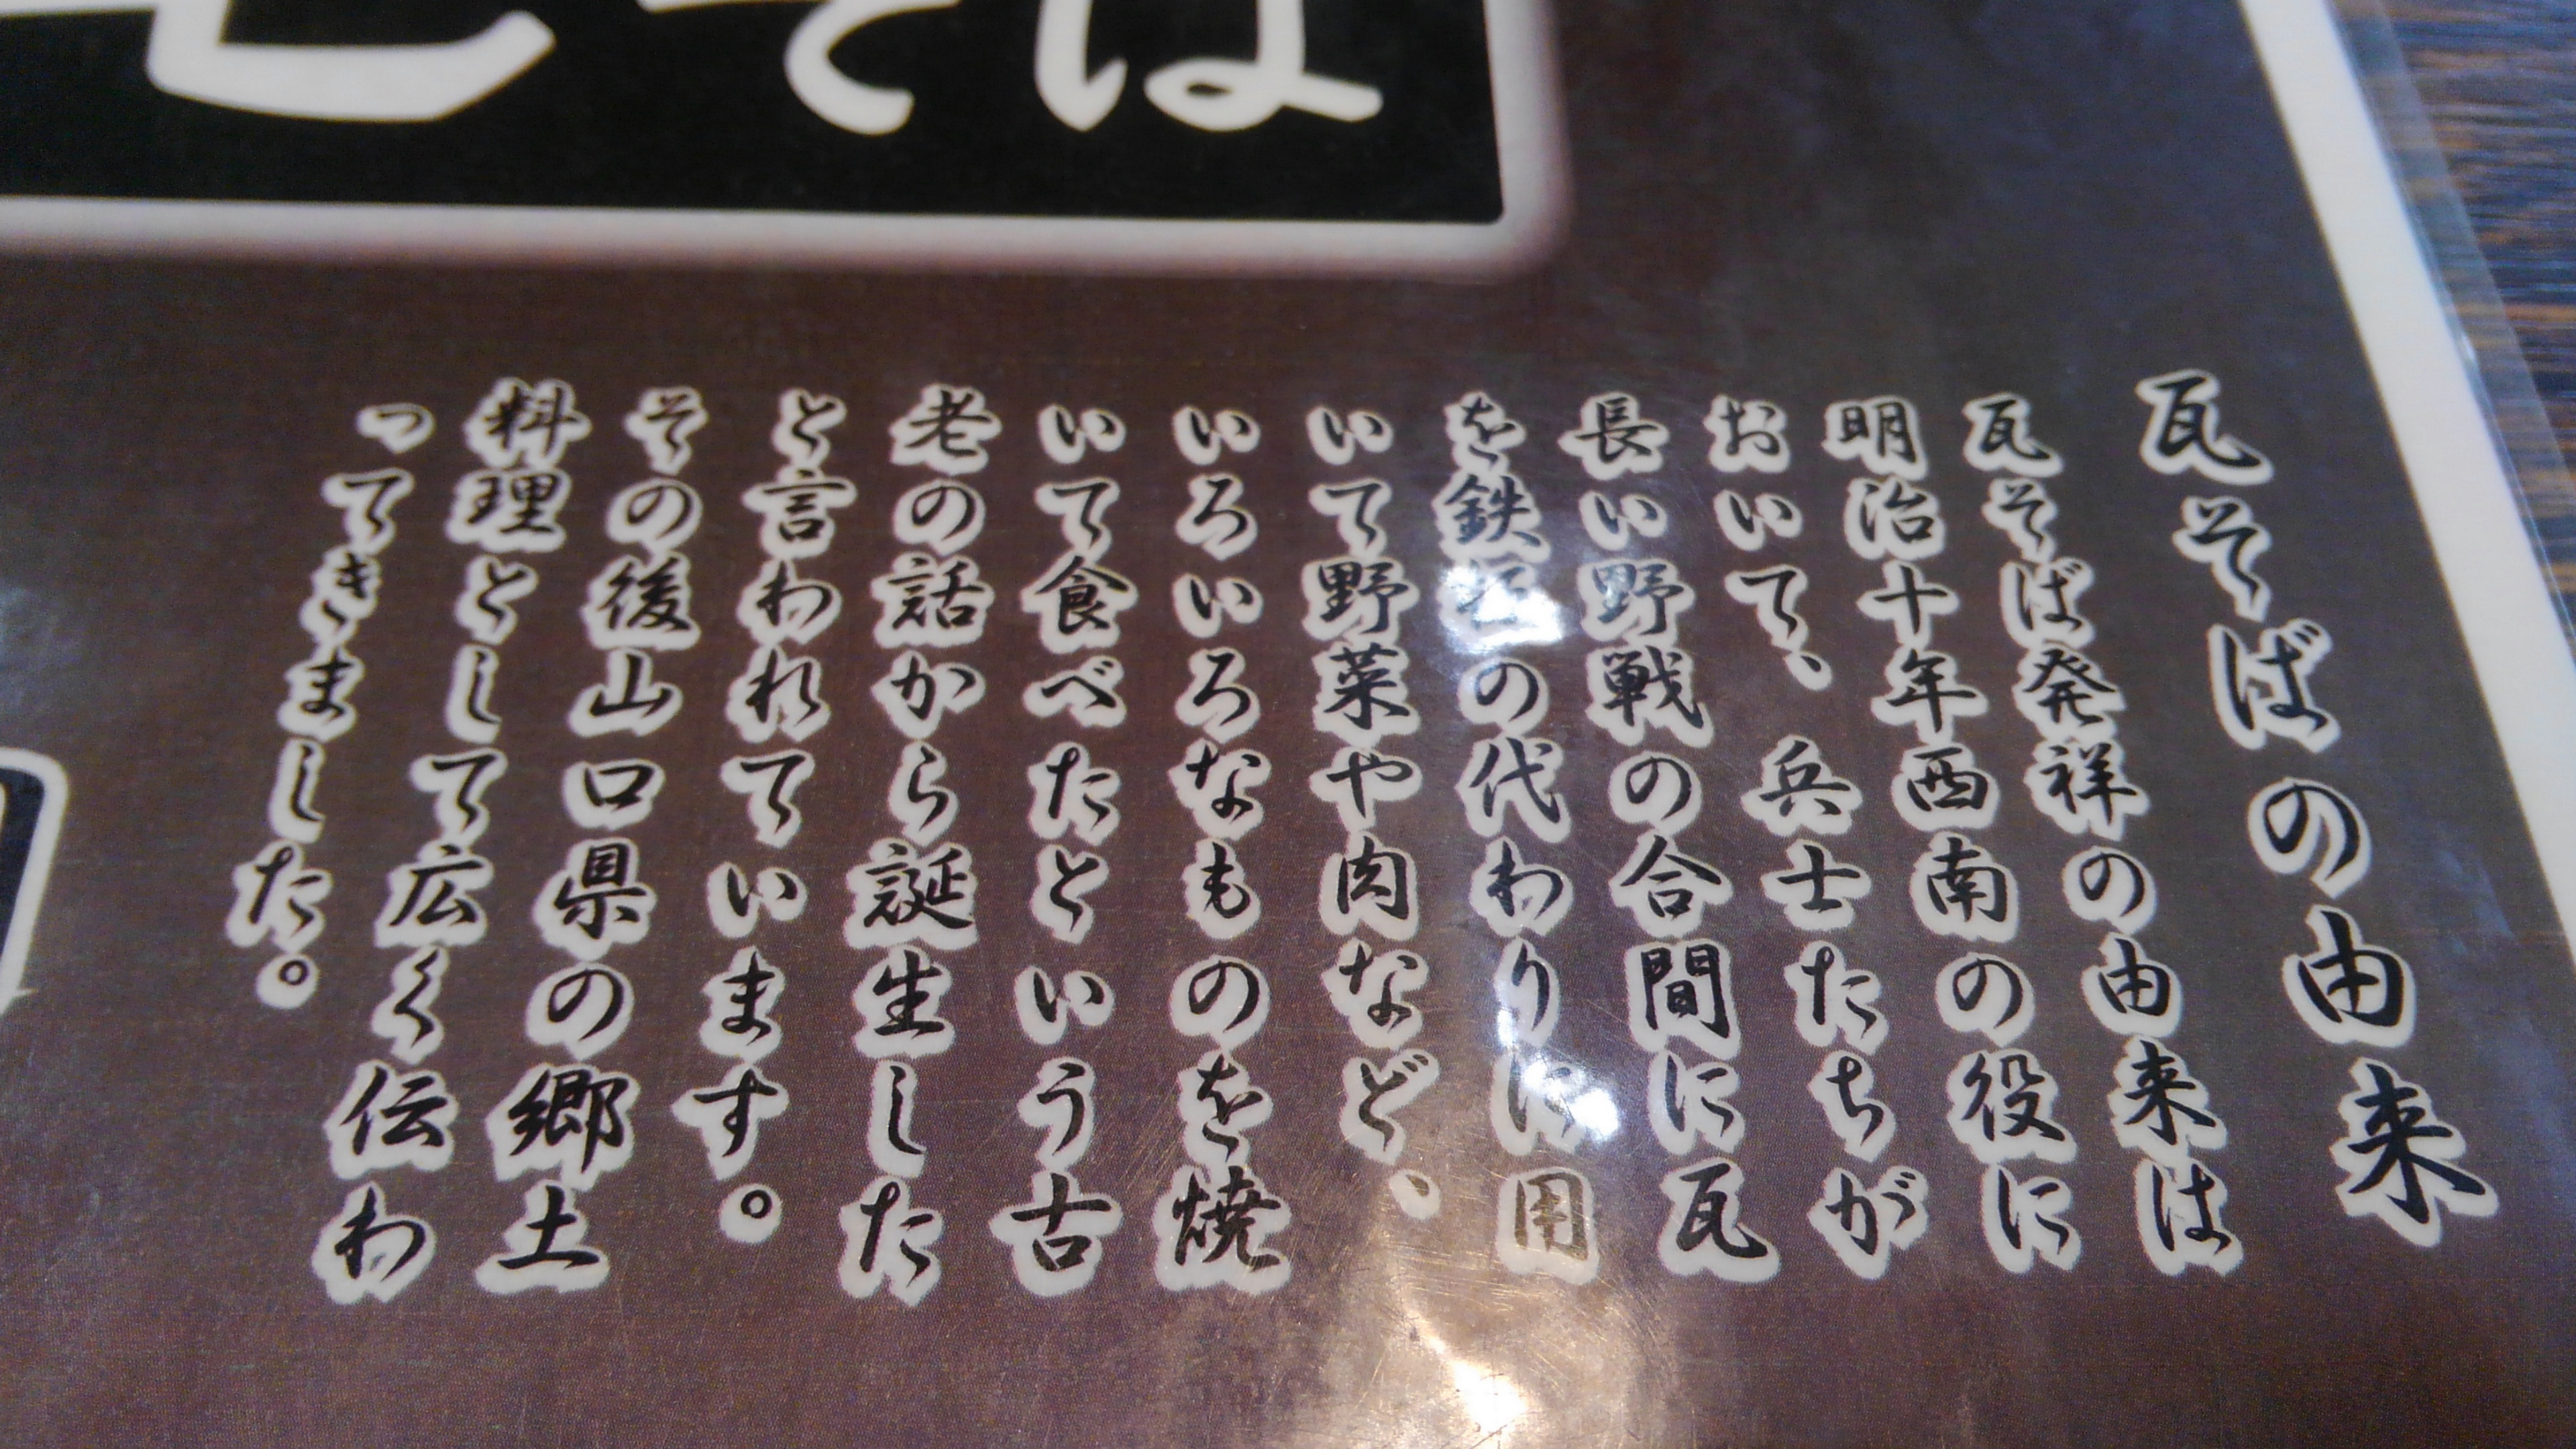 瓦そばの由来
瓦そば発祥の由来は
明治十年西南の役に
おいて、兵士たちが
長い野戦の合間に瓦
を鉄板の代わりに用
いて野菜や肉など、
いろいろなものを焼
いて食べたという古
老の話から誕生した
と言われています。
その後山口県の郷土
料理として広く伝わ
ってきました。